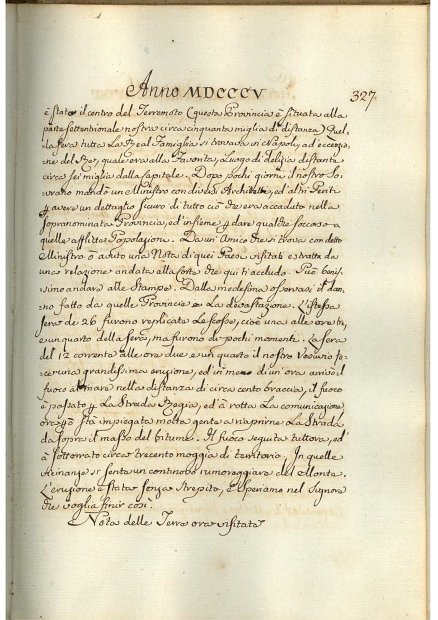 Anno MDCCCV
327.
è stato il centro del Terremoto (questa Provincia è situata alla
parte settentrionale nostra circa cinquanta miglia di distanza) Quel-
la sera tutta La Real Famiglia si trovava in Napoli, ad eccezio-
ne del Re, quale era alla Favorita, Luogo di delizia distante
circa sei miglia dalla Capitale. Dopo pochi giorni il nostro So-
vrano mandò un Ministro con diversi Architetti, ed altri Periti
p avere un dettaglio sicuro di tutto ciò che era accaduto nella
sopranominata Provincia, ed insieme p dare qualche soccorso a
quelle afflitte Popolazioni. Da un Amico che si trova con detto
Ministro ò avuto una Nota di quei Paesi visitati estratta da
una relazione andata alla Corte che qui ti accludo. Può benis-
simo andare alle Stampe. Dalla medesima osservasi il dan-
no fatto da quelle Provincie e La devastazione. L'istessa
sera de 26 furono replicate Le scosse, cioè una alle ore tre,
e un quarto della sera, ma furono di pochi momenti. La sera
del 12 corrente alle ora due e un quarto il nostro Vesuvio fe-
ce una grandissima eruzione, ed in meno di un'ora arrivò il
fuoco al mare nella distanza di circa cento braccia, il fuoco
è passato p La Strada Regia, ed à rotta La comunicazione,
ora p ò stà impiegata molta gente a riaprirne La Strada
da sopra il masso del bitume. Il fuoco seguita tuttora, ed
à sotterrato circa trecento moggia di territorio. In quelle
vicinanze si senta un continovo rumoreggiare del Monte.
L'eruzione è stata senza strepito, e speriamo nel Signore
che voglia finir così.
Nota delle Terra ora visitate